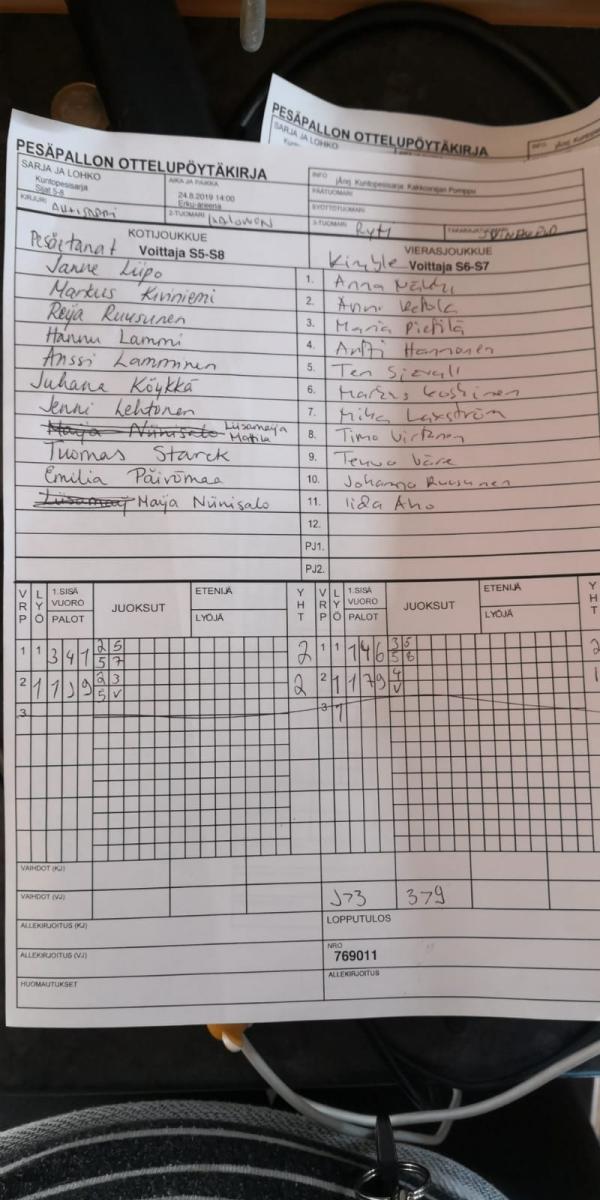 PESÄPALLON OTTELUPÖYTÄKIRJA
SARJA JA LOHKO
PESÄPALLON OTTELUPÖYTÄKIRJA
SARJA JA LOHKO
Kuntopesisarja
Sijat 5-8
AIKA JA PAIKKA
24.8.2019 14:00
Erku-areena
INFO
jÄrej. Kuntopesisarja Kakkosrajan Pomppu
PÄÄTUOMARI
SYÖTTÖTUOMARI
KIRJURI
2-TUOMARI
3-TUOMARI
KOTIJOUKKUE
Voittaja S5-S8
VIERASJOUKKUE
Voittaja S6-S7
Janne Liipo 1. Anna
Markus Kiviniemi 2. Anni Ketola
Reija Ruusunen 3. Maria Pietilä
Hannu Lammi 4. Antti Hannonen
Anssi Lamminen 5.
Juhana Köykkä 6. Markus Koskinen
Jenni Lehtonen 7. Mika Laxström
Maija Niinisalo Liisamaija Mattila 8. Timo Virtanen
Tuomas Starck 9. Teuvo Väre
Emilia Päivömaa 10. Johanna Ruusunen
Liisamaij Maija Niinisalo 11. Iida Aho
12.
PJ1.
PJ2.
VRP LYÖ 1.SISÄ VUORO PALOT JUOKSUT ETENIJÄ LYÖJÄ YHT VRP LYÖ 1.SISÄ VUORO PALOT JUOKSUT ETENIJÄ LYÖJÄ YHT
1 1 3 4 1 2 5 2 1 1 1 4 6 3 5 2
5 7 5 8
2 1 1 9 2 3 2 2 1 1 7 9 4 1
5 V V
3 3 1
VAIHDOT (KJ)
VAIHDOT (VJ) 3>9
ALLEKIRJOITUS (KJ)
LOPPUTULOS
ALLEKIRJOITUS (VJ)
NRO
769011
HUOMAUTUKSET
ALLEKIRJOITUS